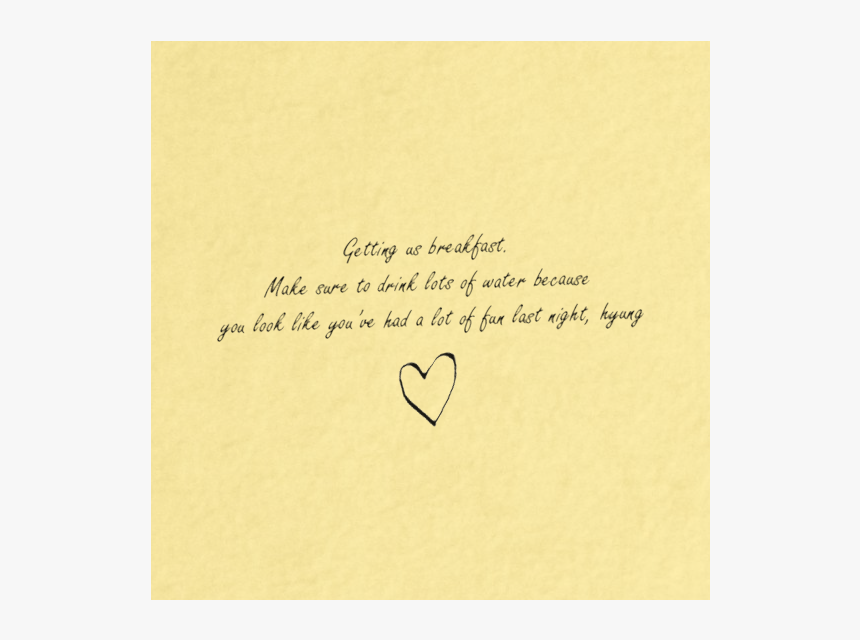 Getting us breakfast.
Make sure to drink lots of water because
you look like you've had a lot of fun last night, hyung